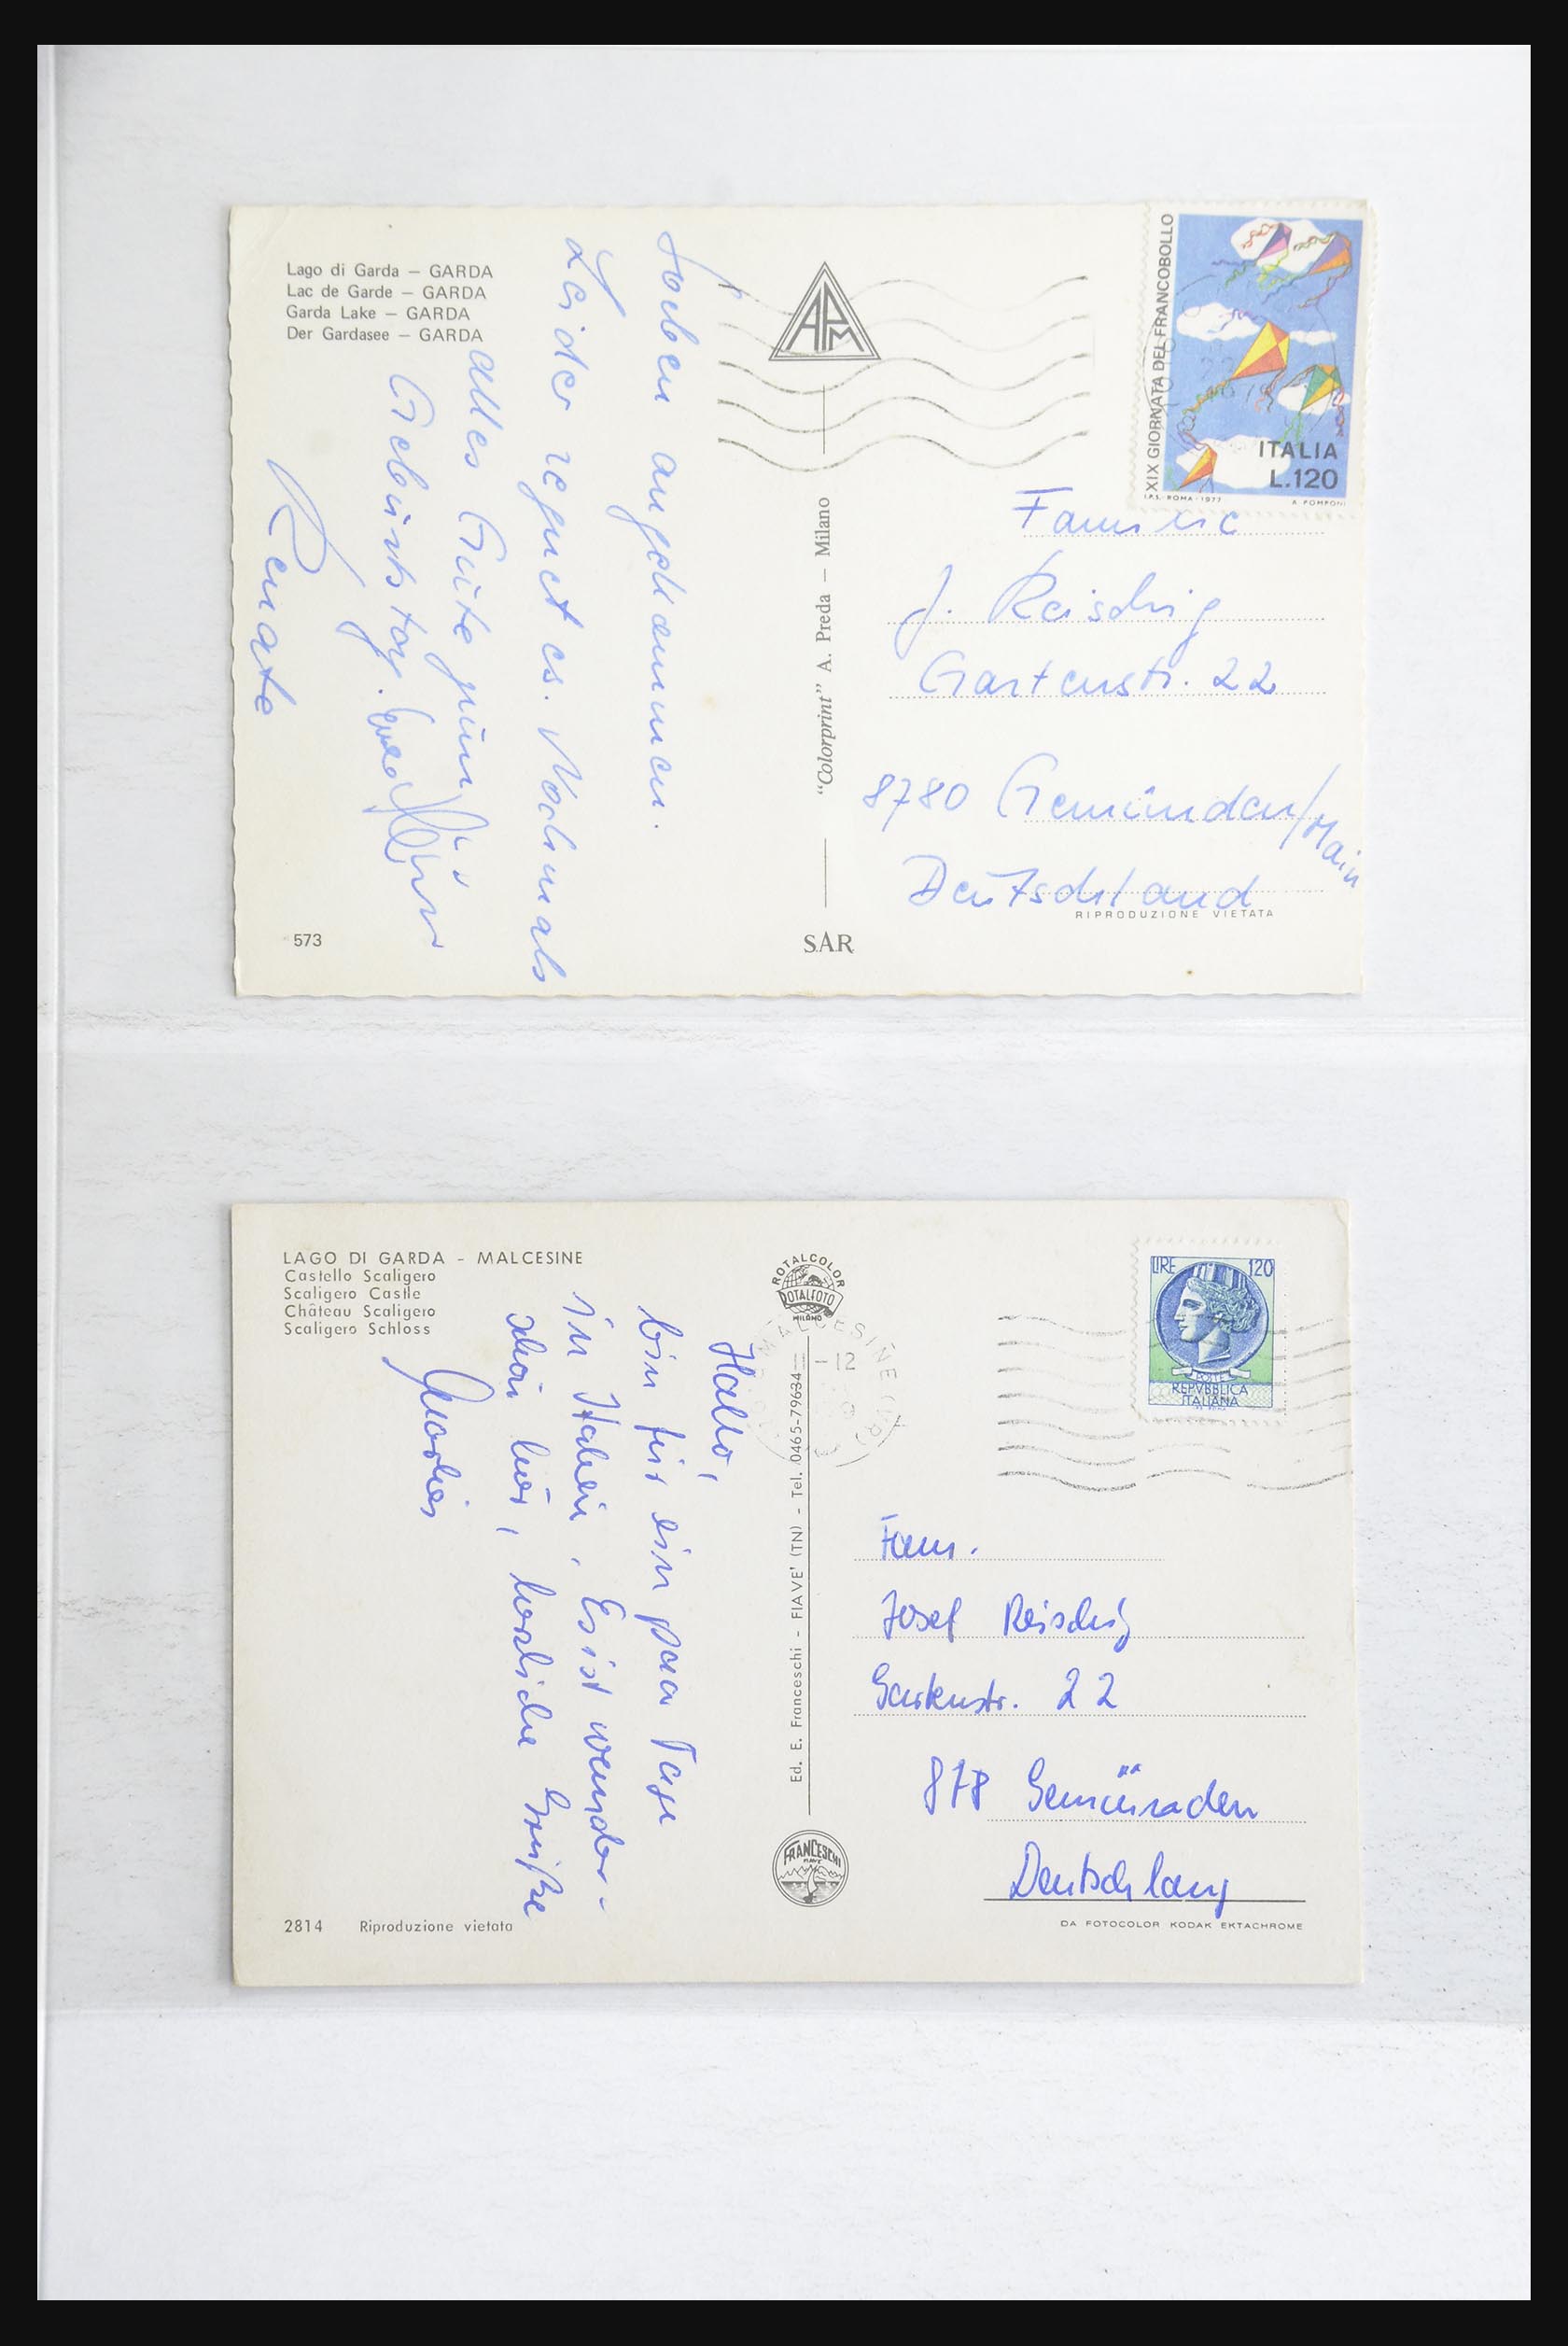 Lago di Garda — GARDA
Lac de Garde — GARDA
Garda Lake — GARDA
Der Gardasee — GARDA
Soeben angekommen.
Leider regnet es. Nochmals
alles Gute zum
Geburtstag.
Renate
573
APM
"Colorprint" A. Preda — Milano
SAR
XIX GIORNATA DEL FRANCOBOLLO
ITALIA
L.120
I.P.S. - ROMA - 1977
A. POMPONI
Familie
J. Reischig
Gartenstr. 22
8780 Gemünden/Main
Deutschland
RIPRODUZIONE VIETATA
LAGO DI GARDA - MALCESINE
Castello Scaligero
Scaligero Castle
Château Scaligero
Scaligero Schloss
Hallo,
bin für ein paar Tage
in Italien. Es ist wunder-
schön hier, herzliche Grüße
Marlies
2814 Riproduzione vietata
ROTALCOLOR
ROTALFOTO
MILANO
MALCESINE (VR)
-12
Ed. E. Franceschi - FIAVE' (TN) - Tel. 0465-79634
FRANCESCHI
FIAVE
LIRE 120
POSTE
REPVBBLICA
ITALIANA
Fam.
Josef Reischig
Gartenstr. 22
878 Gemünden
Deutschland
DA FOTOCOLOR KODAK EKTACHROME